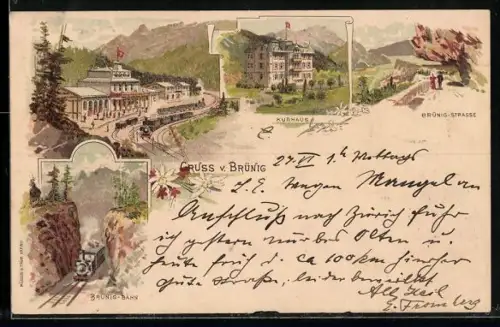 KURHAUS
BRÜNIG-STRASSE
GRUSS v. BRÜNIG
27.VI 1h Mittags
L.E. wegen Mangel an
Anschluß nach Zürich fuhr
ich gestern nur bis Olten u
heute früh d. ca 100 km hierher
Gute Straße, leider
All Heil
BRÜNIG-BAHN